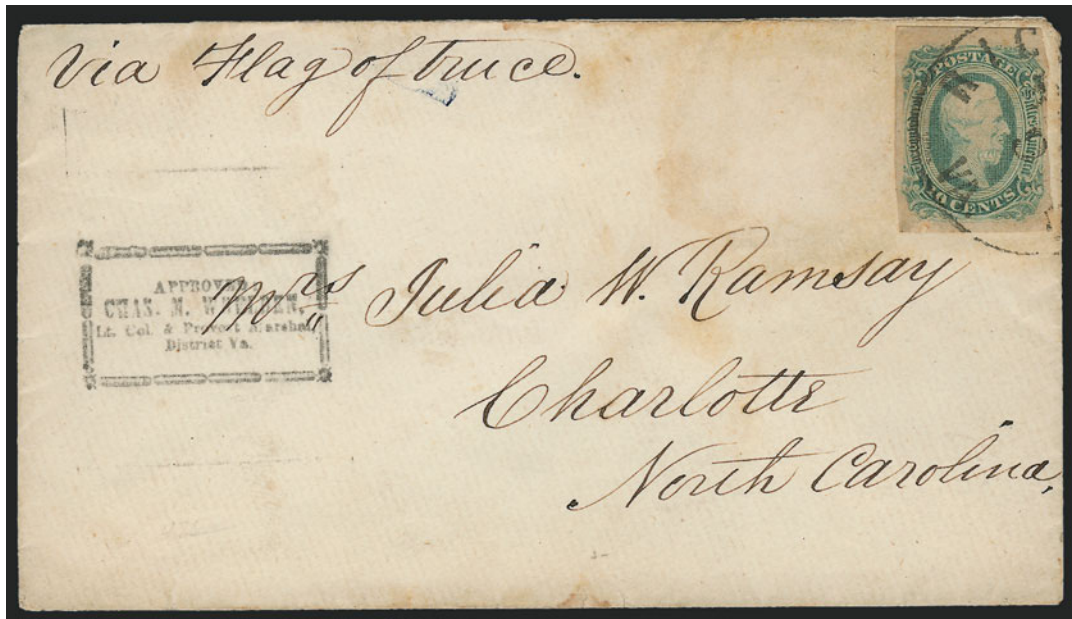 Via Flag of truce.
POSTAGE
CENTS
VA
APPROVED
CHAS. M. WHELDEN,
Lt. Col. & Provost Marshal
District Va.
Mrs Julia W. Ramsay
Charlotte
North Carolina,